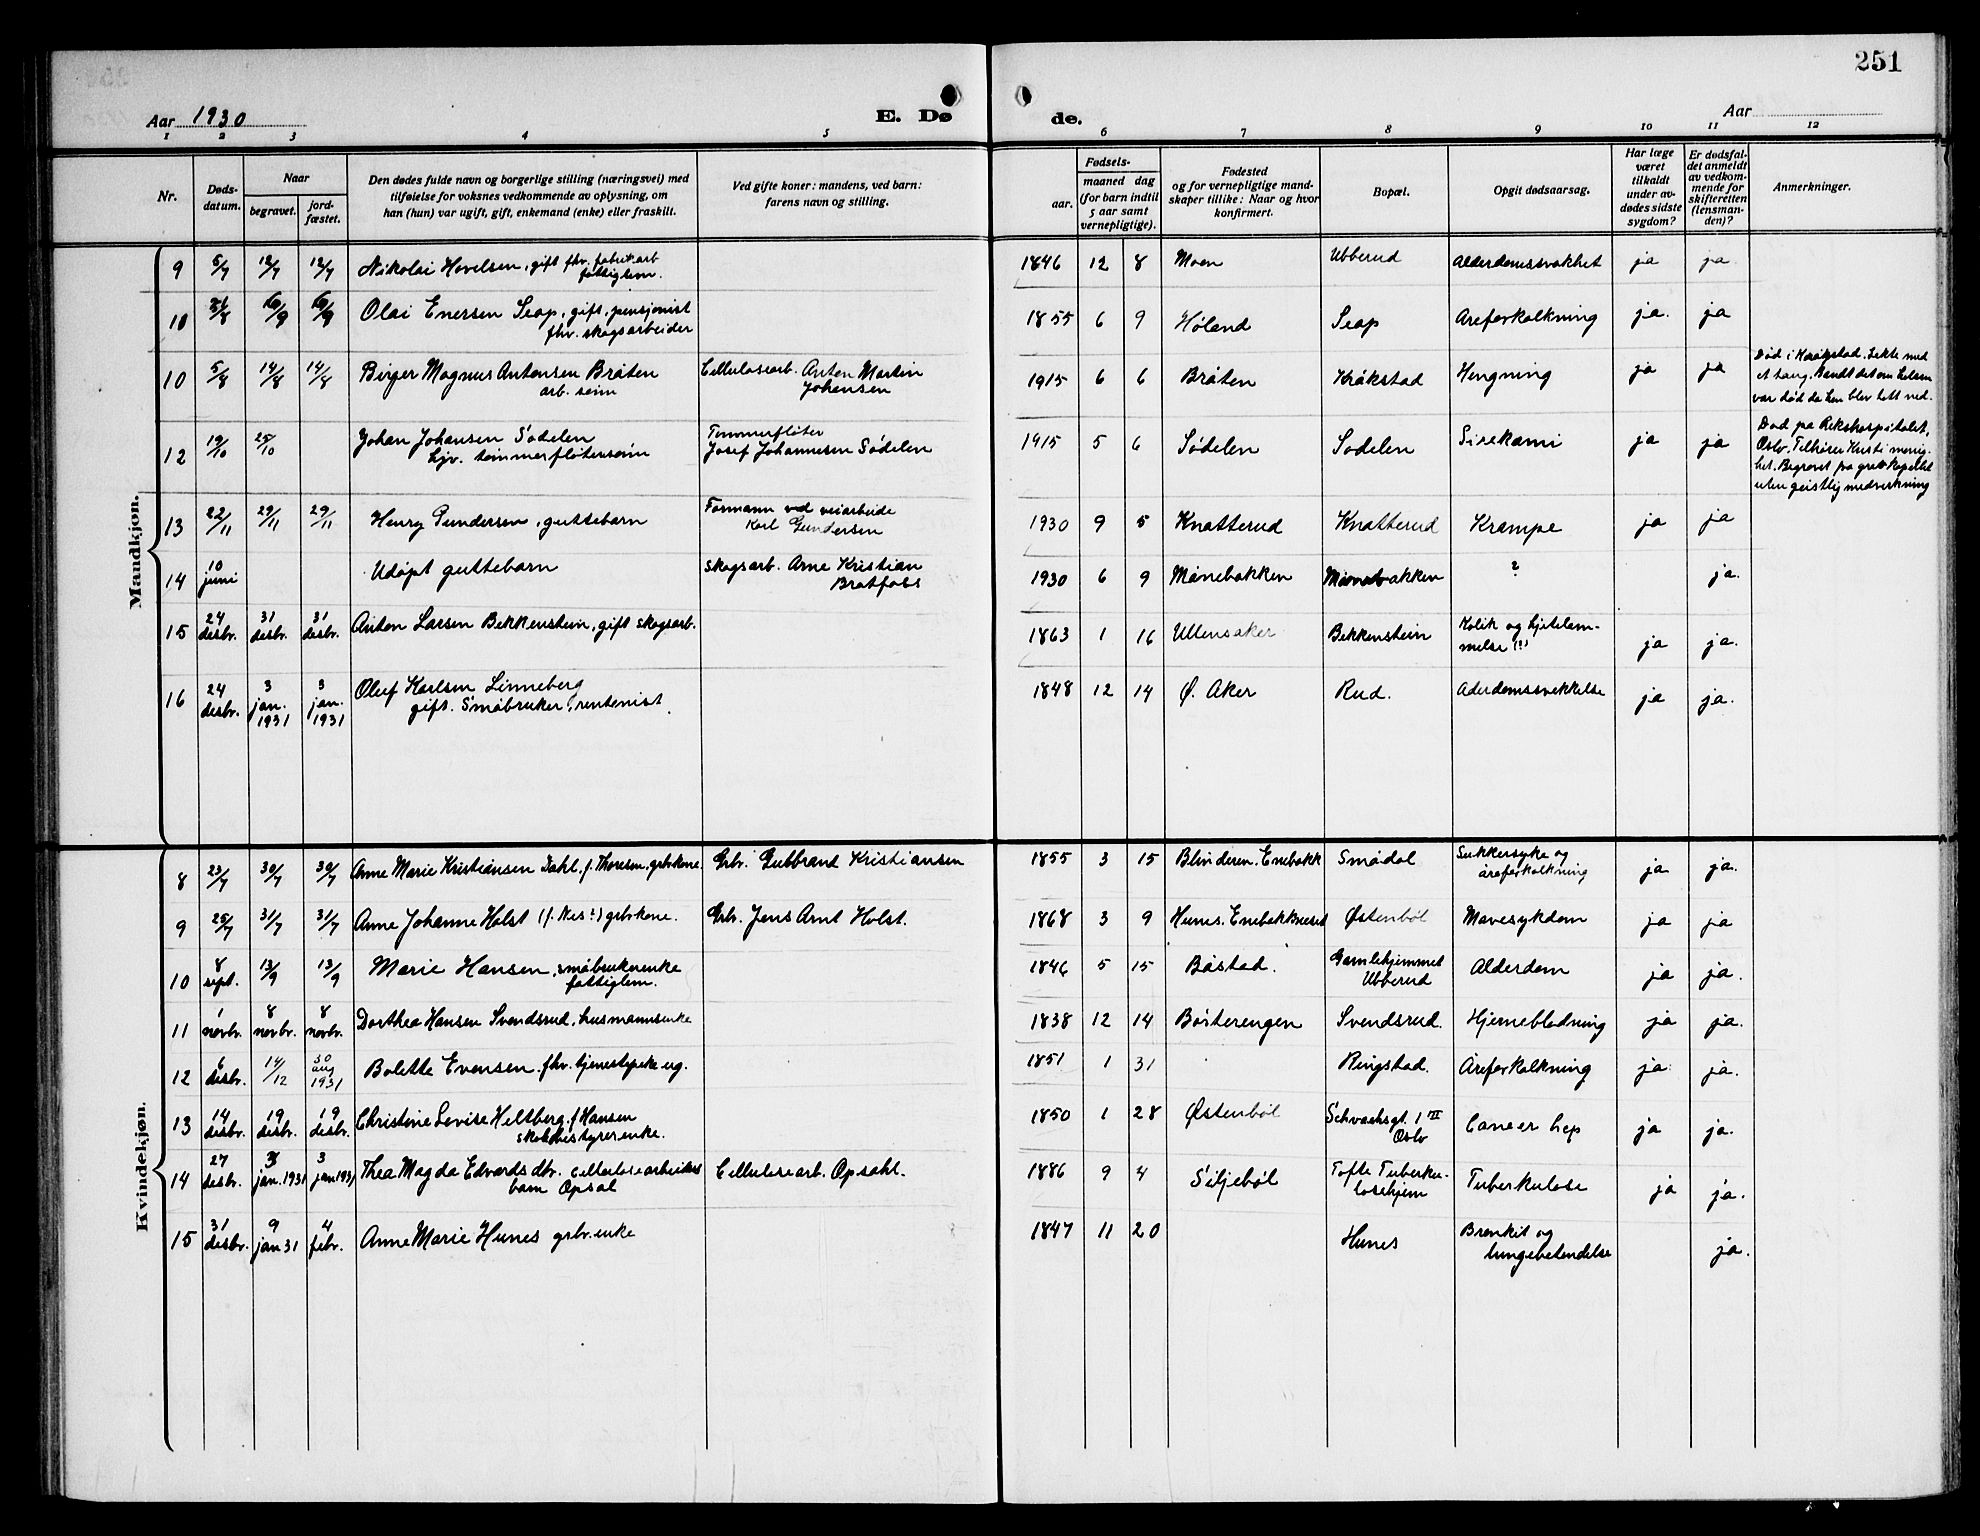 251
Aar 1930
E. Dø
de.
Aar
1 2 3 4 5 6 7 8 9 10 11 12
Nr.
Døds-
datum.
Naar
begravet.
jord-
fæstet.
Den dødes fulde navn og borgerlige stilling (næringsvei) med
tilføielse for voksnes vedkommende av oplysning, om
han (hun) var ugift, gift, enkemand (enke) eller fraskilt.
Ved gifte koner: mandens, ved barn:
farens navn og stilling.
Fødsels-
aar.
maaned dag
(for barn indtil
5 aar samt
vernepligtige).
Fødested
og for vernepligtige mand-
skaper tillike: Naar og hvor
konfirmert.
Bopæl.
Opgit dødsaarsag.
Har læge
været
tilkaldt
under av-
dødes sidste
sygdom?
Er dødsfal-
det anmeldt
av vedkom-
mende for
skifteretten
(lensman-
den)?
Anmerkninger.
Mandkjøn.
9 5/7 12/7 12/7 Nikolai Hovelsen, gift fhv. fabrikarb 1846 12 8 Moen Ubberud Alderdomssvakhet ja ja
fattiglem.
10 31/8 6/9 6/9 Olai Enersen Seap, gift, pensjonist 1855 6 9 Høland Seap Areforkalkning ja. ja
fhv. skogsarbeider
10 5/8 14/8 14/8 Birger Magnus Antonsen Bråten Cellulosearb. Anton Martin 1915 6 6 Bråten Kråkstad Hengning ja ja
arb. sønn Johansen
Død i Kråkstad. Lekte med
et taug.
var død da han blev tatt ned.
12 19/10 25/10 Johan Johansen Sødelen Tømmerfløter 1915 5 6 Sødelen Sødelen ja ja
tømmerfløtersønn Josef Johannesen Sødelen
Død på Rikshospitalet,
Oslo. Tilhører menig-
het. Begravet fra
uten geistlig medvirkning
13 22/11 29/11 29/11 Henry Gundersen, guttebarn Formann ved veiarbeide 1930 9 5 Knatterud Knatterud Krampe ja ja
Karl Gundersen
14 10 juni Udøpt guttebarn skogsarb. Arne Kristian 1930 6 9 Månebakken Månebakken ? ja.
Bratfoss
15 24 desbr. 31 desbr. 31 desbr. Anton Larsen Bekkenstein, gift skogsarb. 1863 1 16 Ullensaker Bekkenstein Kolik og hjertelam-
melse (!) ja ja.
16 24 desbr. 3 jan. 1931 3 jan. 1931 Oluf Karlsen Linneberg 1848 12 14 Ø. Aker Rud. Aderdomssvekkelse ja ja.
gift. Småbruker, rentenist.
Kvindekjøn.
8 23/7 30/7 30/7 Anne Marie Kristiansen Dahl, f. Thoresen, grbrkone. Grbr. Gubbrand Kristiansen 1855 3 15 Blinderen. Enebakk Smådal Sukkersyke og
åreforkalkning ja ja.
9 25/7 31/7 31/7 Anne Johanne Holst (f. Nes?) grbrkone. Grbr. Jens Arnt Holst. 1868 3 9 Hunes. Enebakkneset Østenbøl Mavesykdom ja ja
10 8 sept. 13/9 13/9 Marie Hansen, småbrukerenke 1846 5 15 Båstad. Gamlehjemmet Alderdom ja ja.
fattiglem. Ubberud
11 1 novbr. 8 novbr. 8 novbr. Dorthea Hansen Svendsrud, husmannsenke 1838 12 14 Børterengen Svendsrud. Hjerneblødning ja ja.
12 6 desbr. 14/12 30 aug 1931 Bolette Evensen, fhv. tjenestepike ug. 1851 1 31 Ringstad. Åreforkalkning ja ja.
13 14 desbr. 19 desbr. 19 desbr. Christine Lovise Heltberg f Hansen 1850 1 28 Østenbøl Schwachsgt. 1 III Cancer hep ja ja.
skolebestyrerenke. Oslo
14 27 desbr. 3 jan. 1931 3 jan 1931 Thea Magda Edvardsdtr. cellulosearbeiders Cellulosearb. Opsahl. 1886 9 4 Siljebøl Tofte Tuberku- Tuberkulose ja ja.
barn Opsal losehjem
15 31 desbr. 9 jan 31 4 febr. Anne Marie Hunes grbr.enke 1847 11 20 Hunes Bronkit og
lungebetendelse ja.